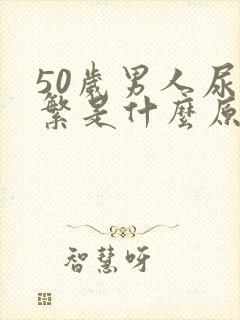 50歲男人尿
繁是什麼原
智慧呀